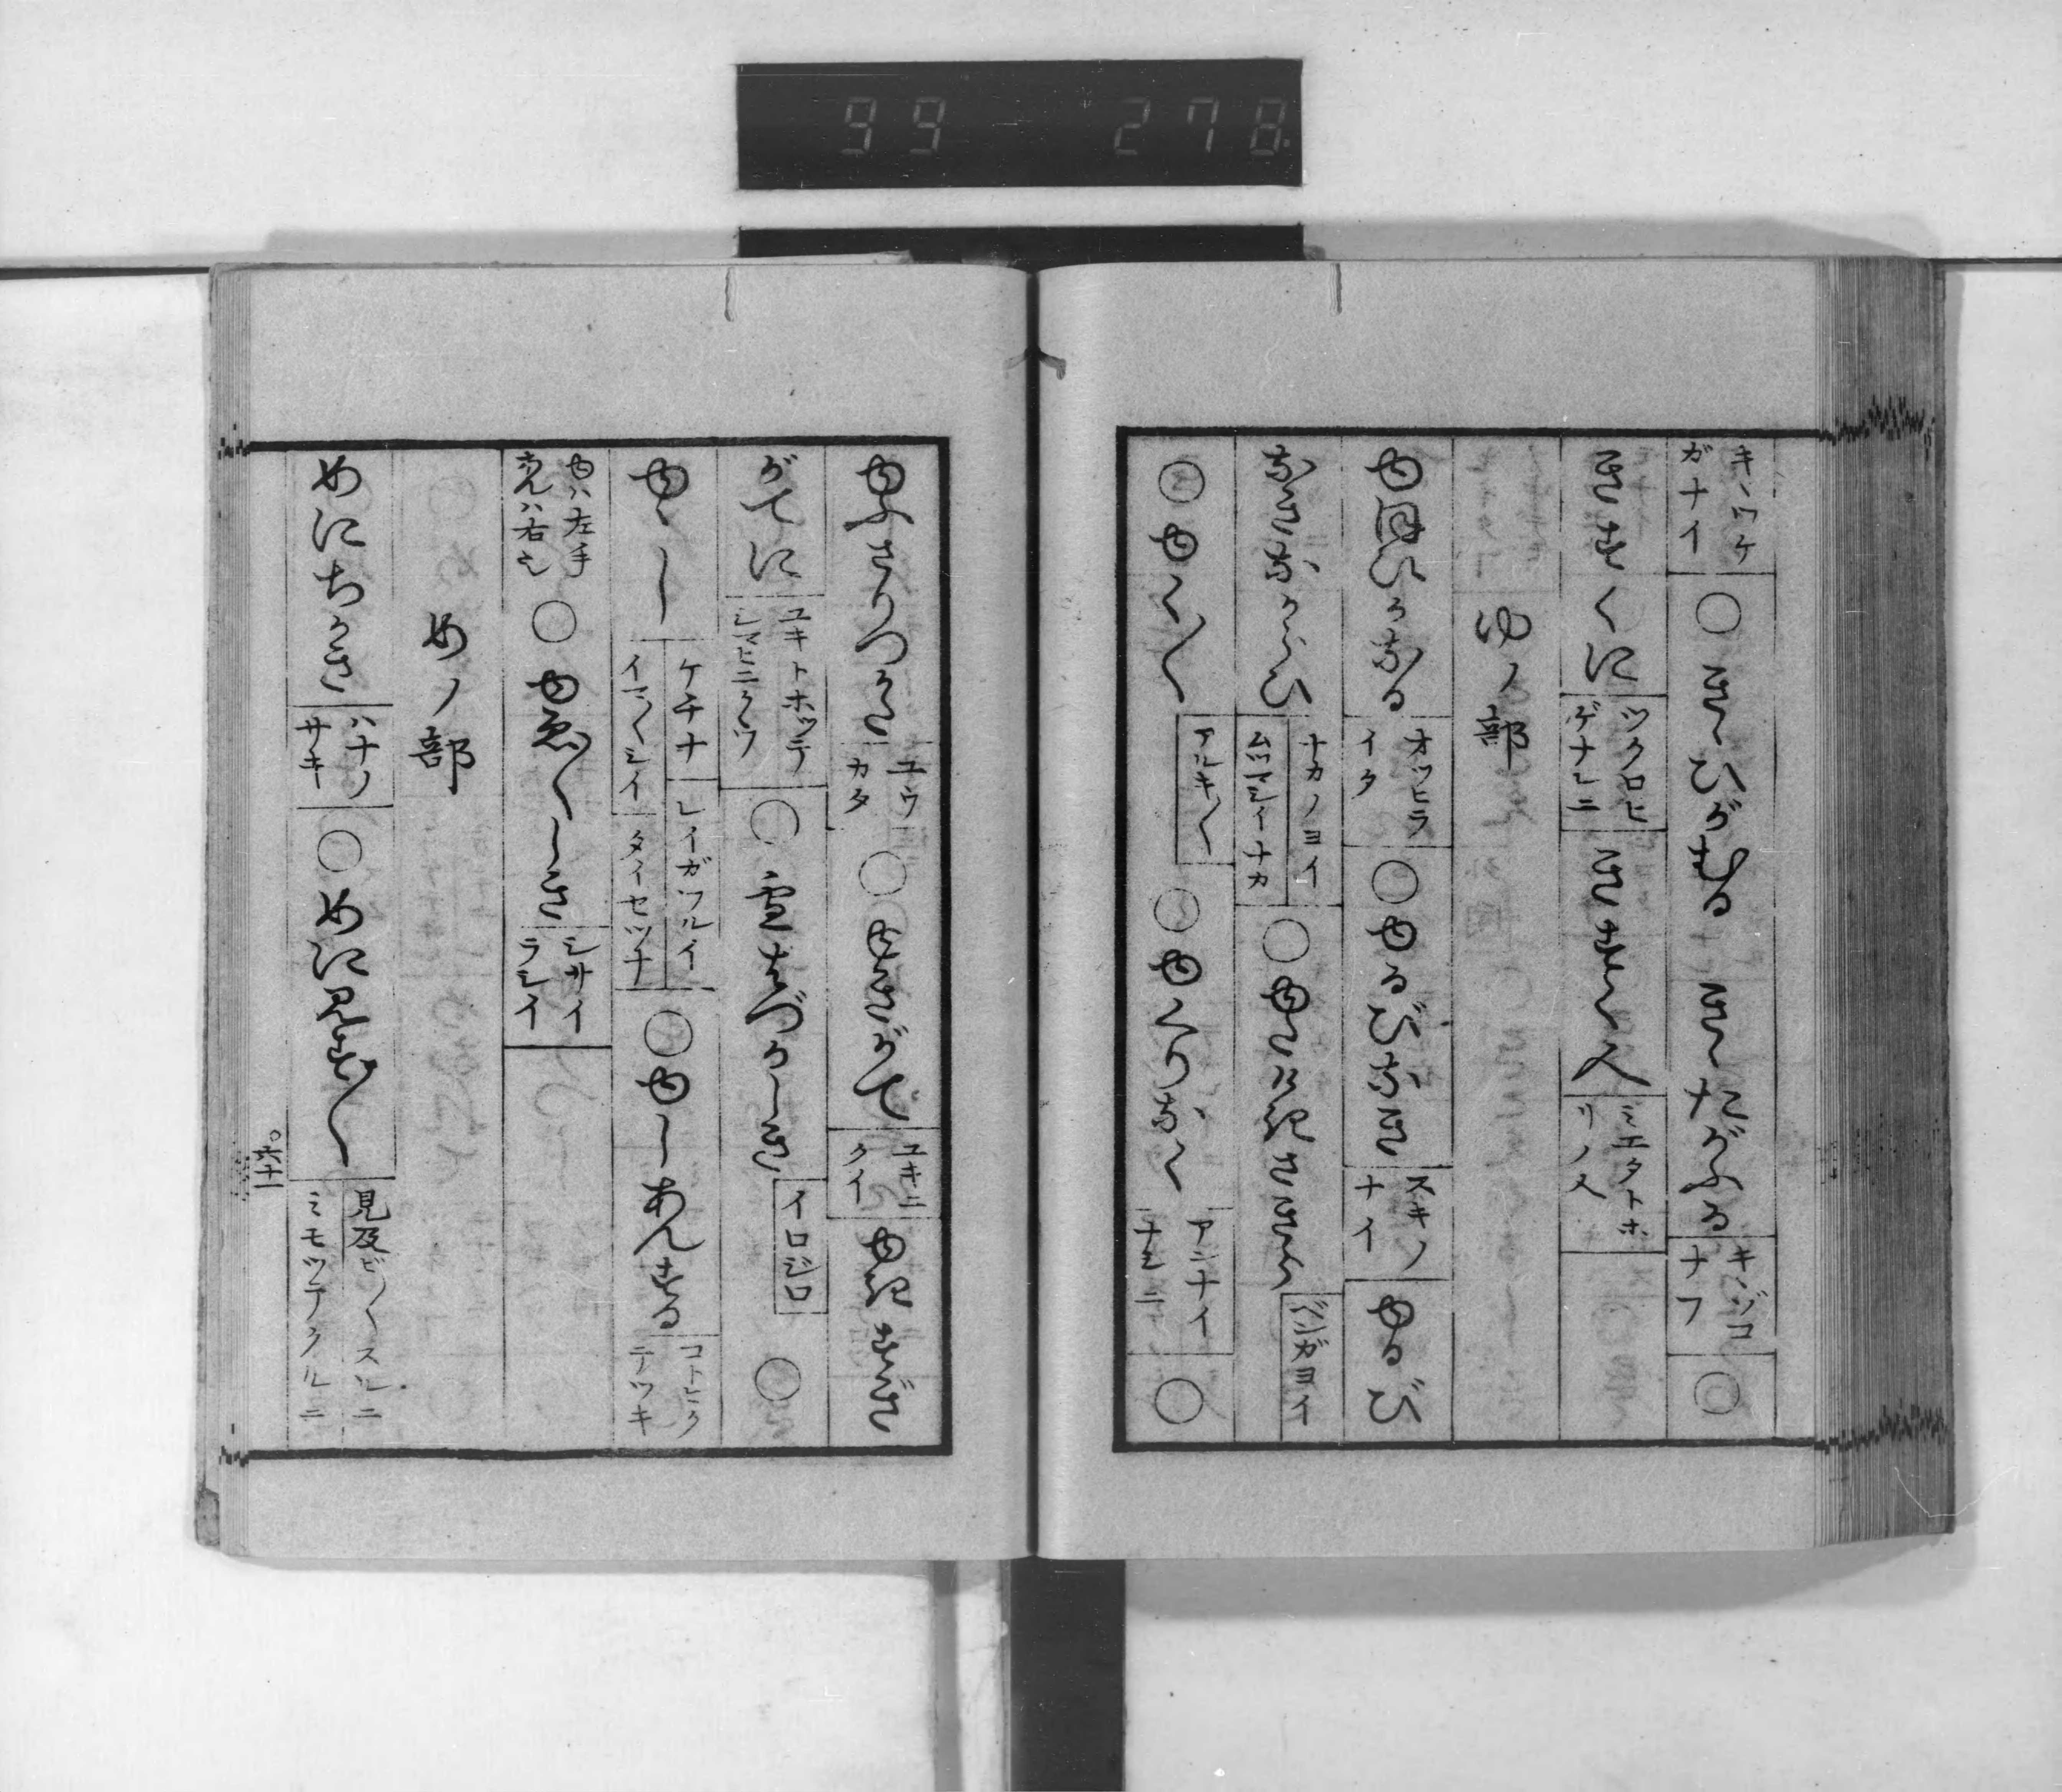 99 278
キノツケ
ガナイ
○きゝひがむる
きゝたがふる
キヽゾコ
ナフ
○
きすくに
ツクロヒ
ゲナシニ
きすく人
ミエタトホ
リノ人
ゆノ部
ゆほびかなる
オツヒラ
イタ
○ゆるびなき
スキノ
ナイ
ゆるび
なきなからひ
ナカノヨイ
ムツマシイナカ
ベンガヨイ
○ゆく〳〵
アルキ〳〵
○ゆくりなく
アンナイ
ナシニ
○
ゆふさりつかた
ユウ
カタ
○ゆきがて
ユキニ
クイ
ゆきすぎ
がてに
ユキトホツテ
シマヒニクウ
○雪はづかしき
イロジロ
○
ゆゝし
ケチナ
イマ〳〵シイ
レイガワルイ
タイセツナ
○ゆしあんする
コトヒク
テツキ
ゆハ左手
あんハ右也
○ゆゑ〳〵しき
シサイ
ラシイ
めノ部
めにちかき
ハナノ
サキ
○めに見す〳〵
見及ビ〳〵スルニ
ミモツテクルニ
六十一